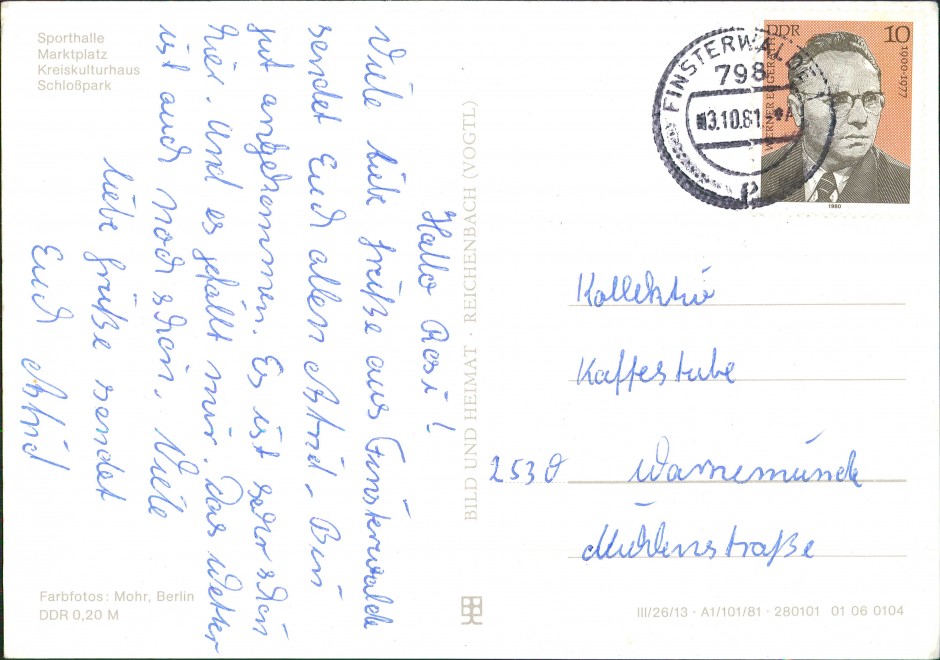 Sporthalle
Marktplatz
Kreiskulturhaus
Schloßpark
Hallo Rosi!
Viele liebe Grüße aus Finsterwalde
sendet Euch allen Astrid. Bin
gut angekommen. Es ist sehr schön
hier. Und es gefällt mir. Das Wetter
ist auch noch schön. Viele
liebe Grüße sendet
Euch Astrid
Farbfotos: Mohr, Berlin
DDR 0,20 M
BILD UND HEIMAT · REICHENBACH (VOGTL)
FINSTERWALDE
798
13.10.81
DDR
10
1900-1977
WERNER EGGERATH
1980
Kollektiv
Kaffestube
2530 Warnemünde
Mühlenstraße
III/26/13 · A1/101/81 · 280101 01 06 0104